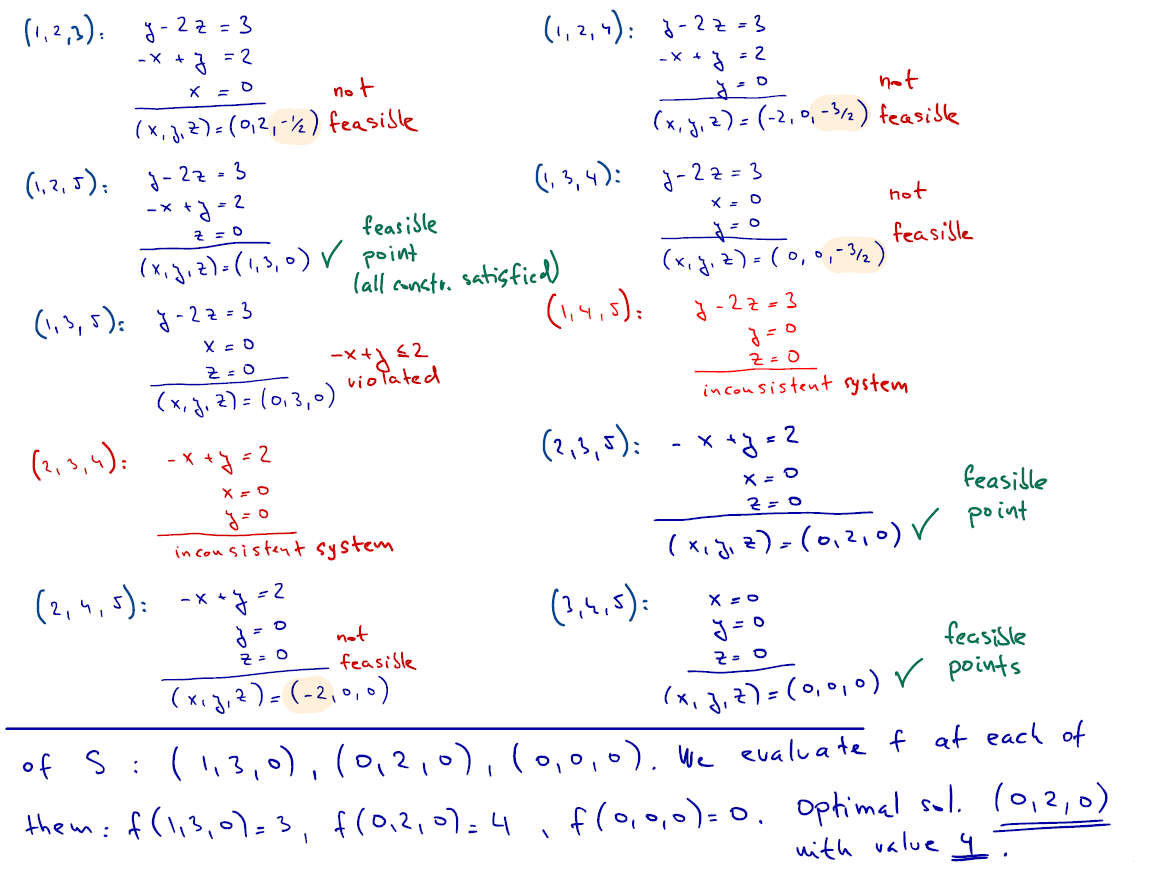 (1,2,3): y - 2z = 3
-x + y = 2
x = 0
(x,y,z) = (0,2,-1/2) not feasible
(1,2,4): y - 2z = 3
-x + y = 2
y = 0
(x,y,z) = (-2,0,-3/2) not feasible
(1,2,5): y - 2z = 3
-x + y = 2
z = 0
(x,y,z) = (1,3,0) ✓
feasible
point
(all constr. satisfied)
(1,3,4): y - 2z = 3
x = 0
y = 0
(x,y,z) = (0,0,-3/2)
not
feasible
(1,3,5): y - 2z = 3
x = 0
z = 0
(x,y,z) = (0,3,0)
-x + y ≤ 2
violated
(1,4,5): y - 2z = 3
y = 0
z = 0
inconsistent system
(2,3,4): -x + y = 2
x = 0
y = 0
inconsistent system
(2,3,5): -x + y = 2
x = 0
z = 0
(x,y,z) = (0,2,0) ✓
feasible
point
(2,4,5): -x + y = 2
y = 0
z = 0
(x,y,z) = (-2,0,0)
not
feasible
(3,4,5): x = 0
y = 0
z = 0
(x,y,z) = (0,0,0) ✓
feasible
points
of S : (1,3,0), (0,2,0), (0,0,0). We evaluate f at each of
them: f(1,3,0) = 3, f(0,2,0) = 4, f(0,0,0) = 0. Optimal sol. (0,2,0)
with value 4.